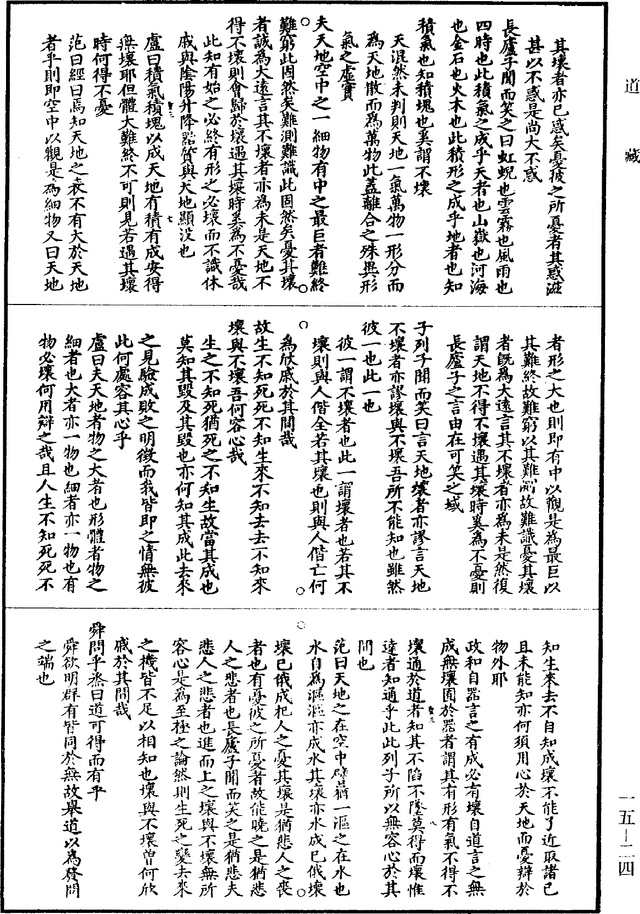 道藏
其壞者亦已惑矣憂彼之所憂者其惑滋
甚以不惑是尚大不惑
長廬子聞而笑之曰虹蜺也雲霧也風雨也
四時也此積氣之成乎天者也山嶽也河海
也金石也火木也此積形之成乎地者也知
積氣也知積塊也奚謂不壞
天混然未判則天地一氣萬物一形分而
為天地散而為萬物此蓋離合之殊異形
氣之虛實
夫天地空中之一細物有中之最巨者難終
難窮此固然矣難測難識此固然矣憂其壞
者誠為大遠言其不壞者亦為未是天地不
得不壞則會歸於壞遇其壞時奚為不憂哉
此知有始之必終有形之必壞而不識休
戚與陰陽升降器質與天地顯没也
盧曰積氣積塊以成天地有積有成安得
無壞耶但體大難終不可則見若遇其壞
時何得不憂
范曰經曰焉知天地之表不有大於天地
者乎則即空中以觀是為細物又曰天地
者形之大也則即有中以觀是為最巨以
其難終故難窮以其難測故難識憂其壞
者既為大遠言其不壞者亦為未是然復
謂天地不得不壞遇其壞時奚為不憂則
長廬子之言由在可笑之域
子列子聞而笑曰言天地壞者亦謬言天地
不壞者亦謬壞與不壞吾所不能知也雖然
彼一也此一也
彼一謂不壞者也此一謂壞者也若其不
壞則與人偕全若其壞也則與人偕亡何
為欣戚於其間哉
故生不知死死不知生來不知去去不知來
壞與不壞吾何容心哉
生之不知死猶死之不知生故當其成也
莫知其毀及其毀也亦何知其成此去來
之見驗成敗之明徵而我皆即之情無彼
此何處容其心乎
盧曰夫天地者物之大者也形體者物之
細者也大者亦一物也細者亦一物也有
物必壞何用辯之哉且人生不知死死不
知生來去不自知成壞不能了近取諸己
且未能知亦何須用心於天地而憂辯於
物外耶
政和自器言之有成必有壞自道言之無
成無壞囿於器者謂其有形有氣不得不
壞通於道者知其不陷不墜莫得而壞惟
達者知通乎此此列子所以無容心於其
間也
范曰天地之在空中壁猶一漚之在水也
水自為漚漚亦成水其壞亦水成已俄壞
壞已俄成杞人之憂其壞是猶悲人之喪
者也有憂彼之所憂者故能曉之是猶悲
人之悲者也長廬子聞而笑之是猶悲夫
悲人之悲者也進而上之壞與不壞無所
容心是為至極之論然則生死之變去來
之機皆不足以相知也壞與不壞曽何欣
戚於其間哉
舜問乎烝曰道可得而有乎
舜欲明群有皆同於無故舉道以為發問
之端也
一五—二四